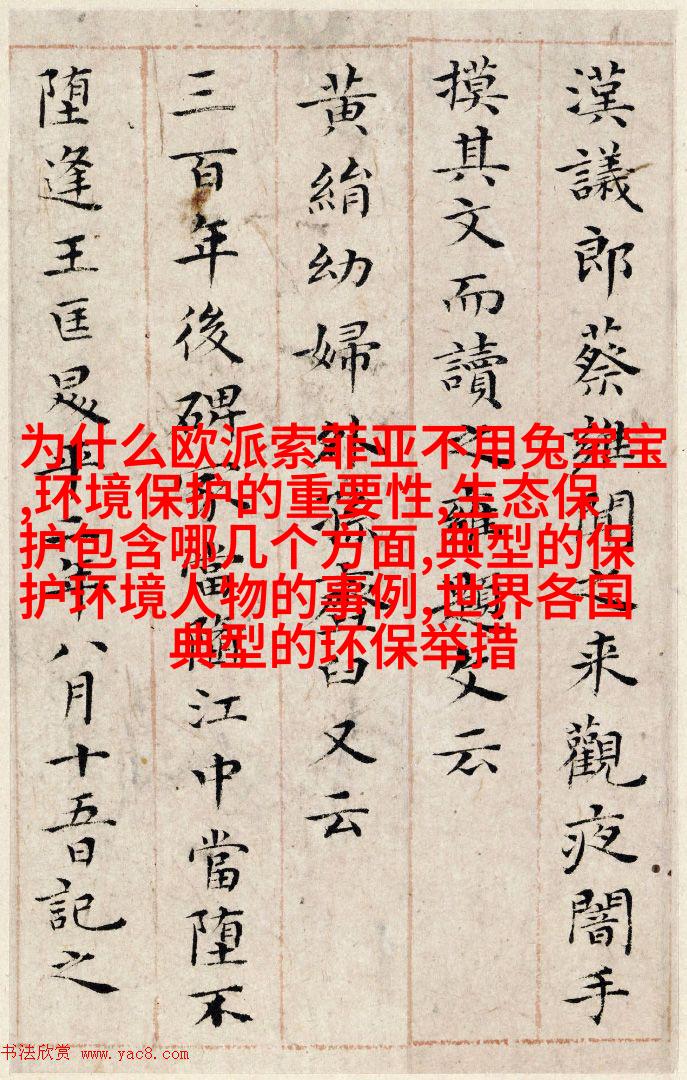 漢議郎蔡雝聞之来觀夜闇手
摸其文而讀之雝題文云
黄絹幼婦外孫臼又云
三百年後碑冢當堕江中當堕不
堕逢王匡平二年八月十五日記之
为什么欧派索菲亚不用兔宝宝
,环境保护的重要性,生态保
护包含哪几个方面,典型的保
护环境人物的事例,世界各国
典型的环保举措
书法欣赏 www.yac8.com